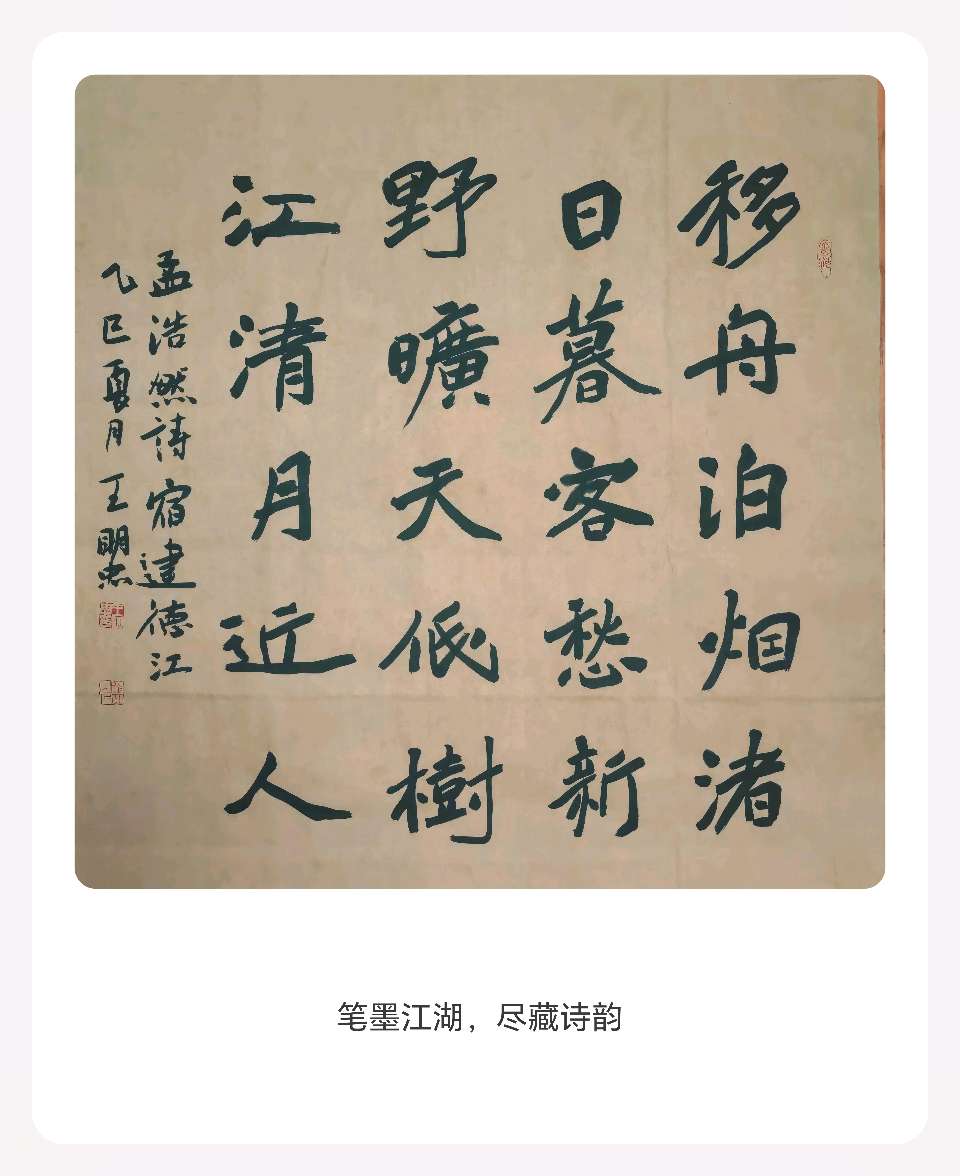 移舟泊烟渚
日暮客愁新
野曠天低樹
江清月近人
孟浩然詩宿建德江
乙巳夏月王明忠
笔墨江湖，尽藏诗韵